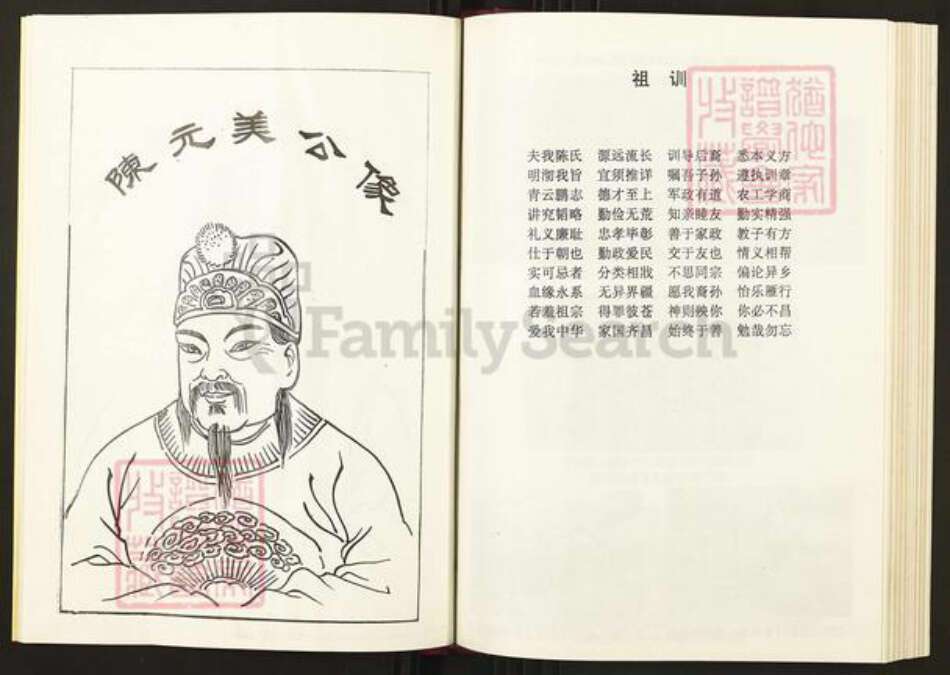 陳元美公像
祖 训
夫我陈氏 源远流长 训导后裔 悉本义方
明沏我旨 宜须推详 嘱吾子孙 遵执训章
青云鹏志 德才至上 军政有道 农工学商
讲究韬略 勤俭无荒 知亲睦友 勤实精强
礼义廉耻 忠孝毕彰 善于家政 教子有方
仕于朝也 勤政爱民 交于友也 情义相帮
实可忌者 分类相戕 不思同宗 偏论异乡
血缘永系 无异界疆 愿我裔孙 怡乐雁行
若羞祖宗 得罪彼苍 神则殃你 你必不昌
爱我中华 家国齐昌 始终于善 勉哉勿忘
FamilySearch